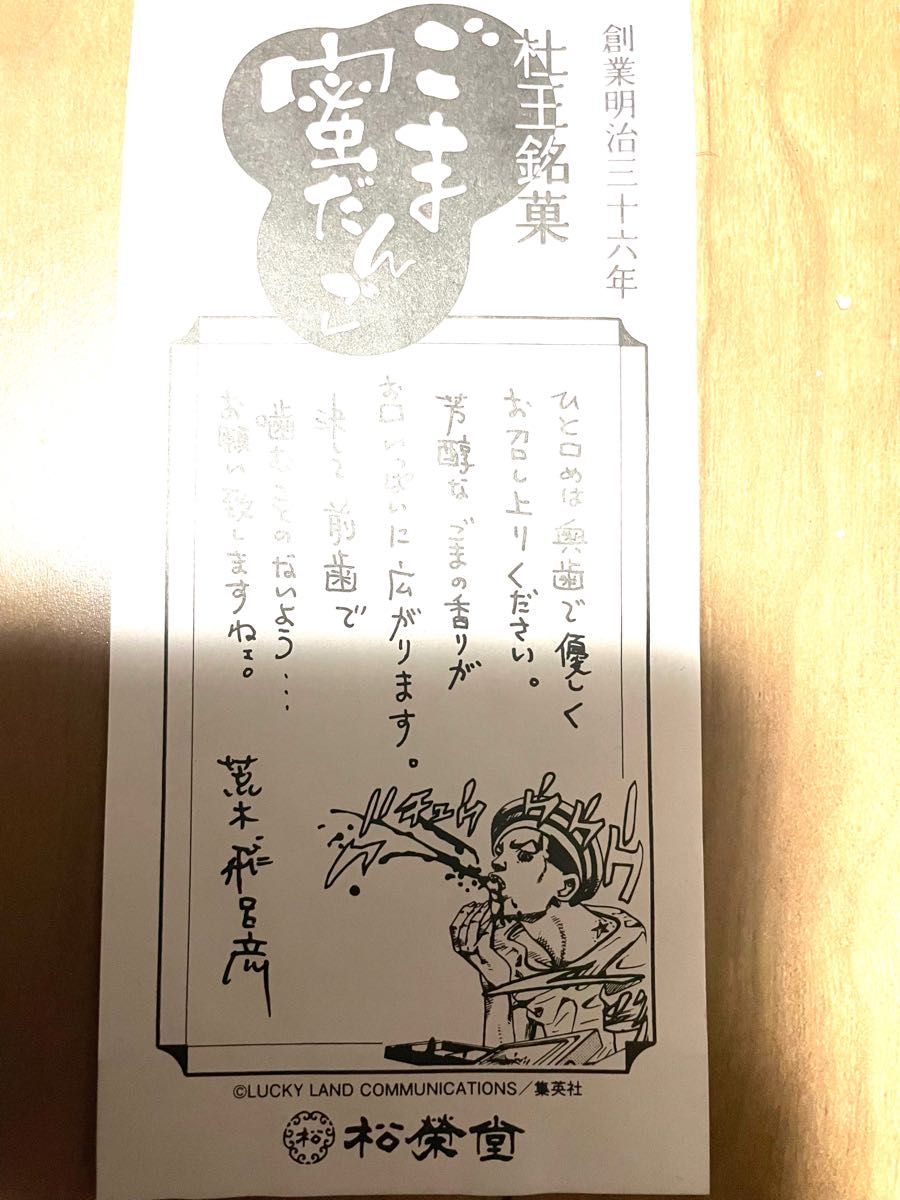 創業明治三十六年
杜王銘菓
ごま
蜜だんご
ひと口めは奥歯で優しく
お召し上りください。
芳醇なごまの香りが
お口いっぱいに広がります。
決して前歯で
噛むことのないよう…
お願い致しますねェ。
荒木飛呂彦
ブチュウ
ドドドド
©LUCKY LAND COMMUNICATIONS／集英社
松
松榮堂